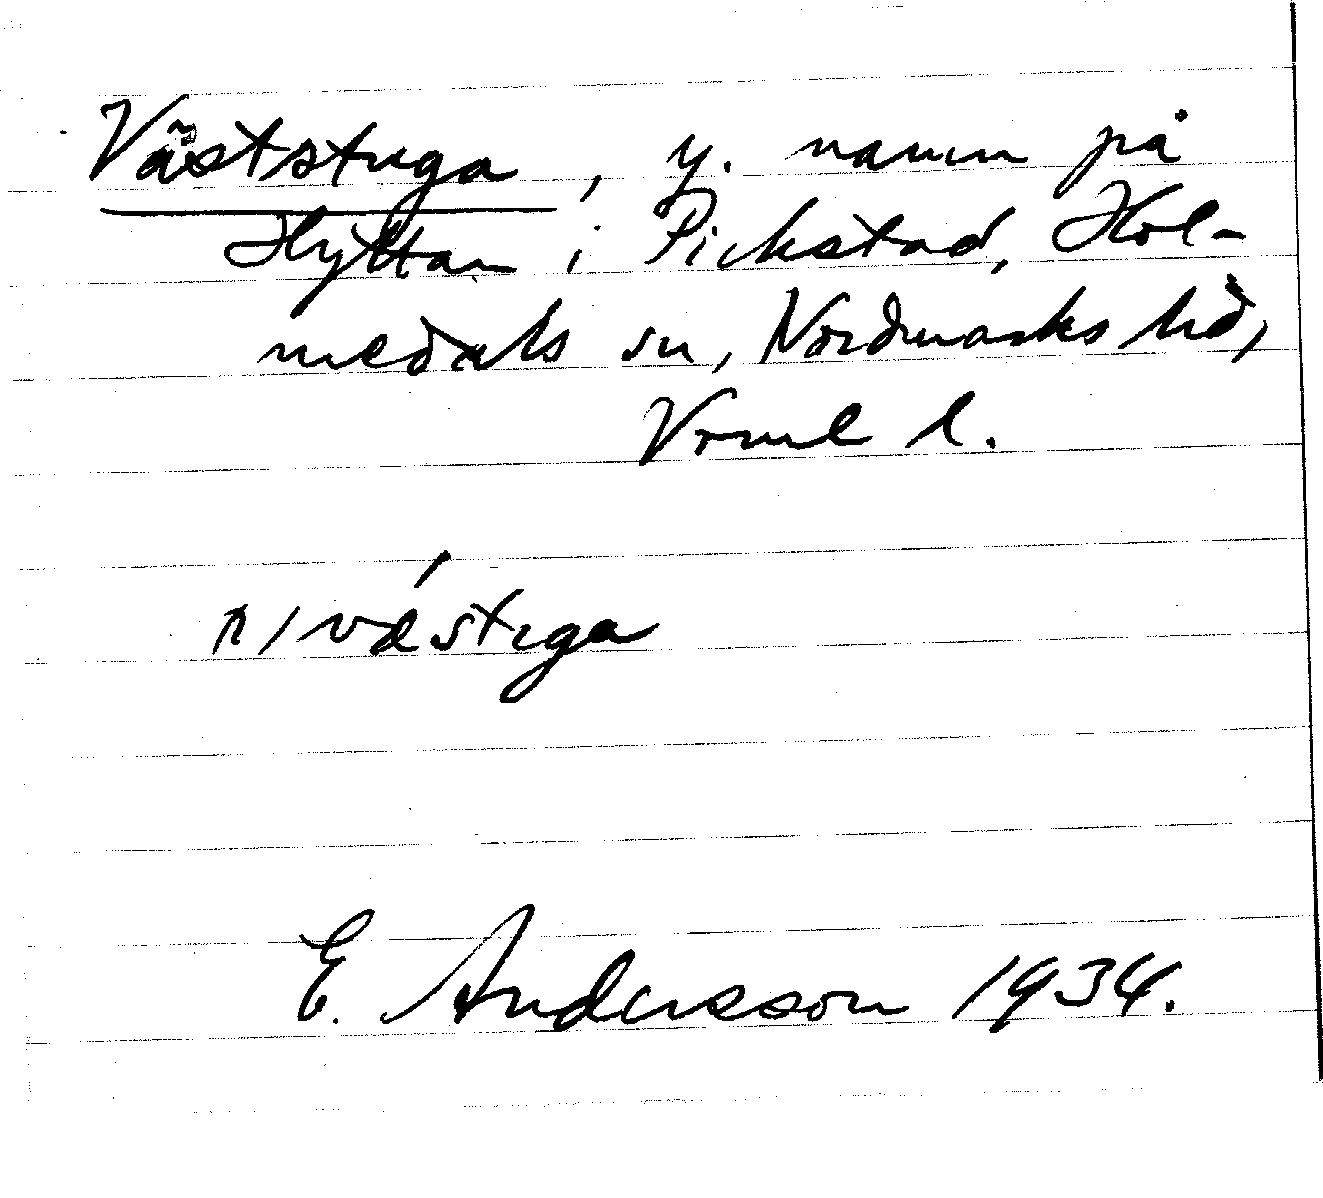 Väststuga, y. namn på
Hyttan i Pickstad, Hol-
medals sn, Nordmarks hd,
Vrml l.
västuga
E. Andersson 1934.